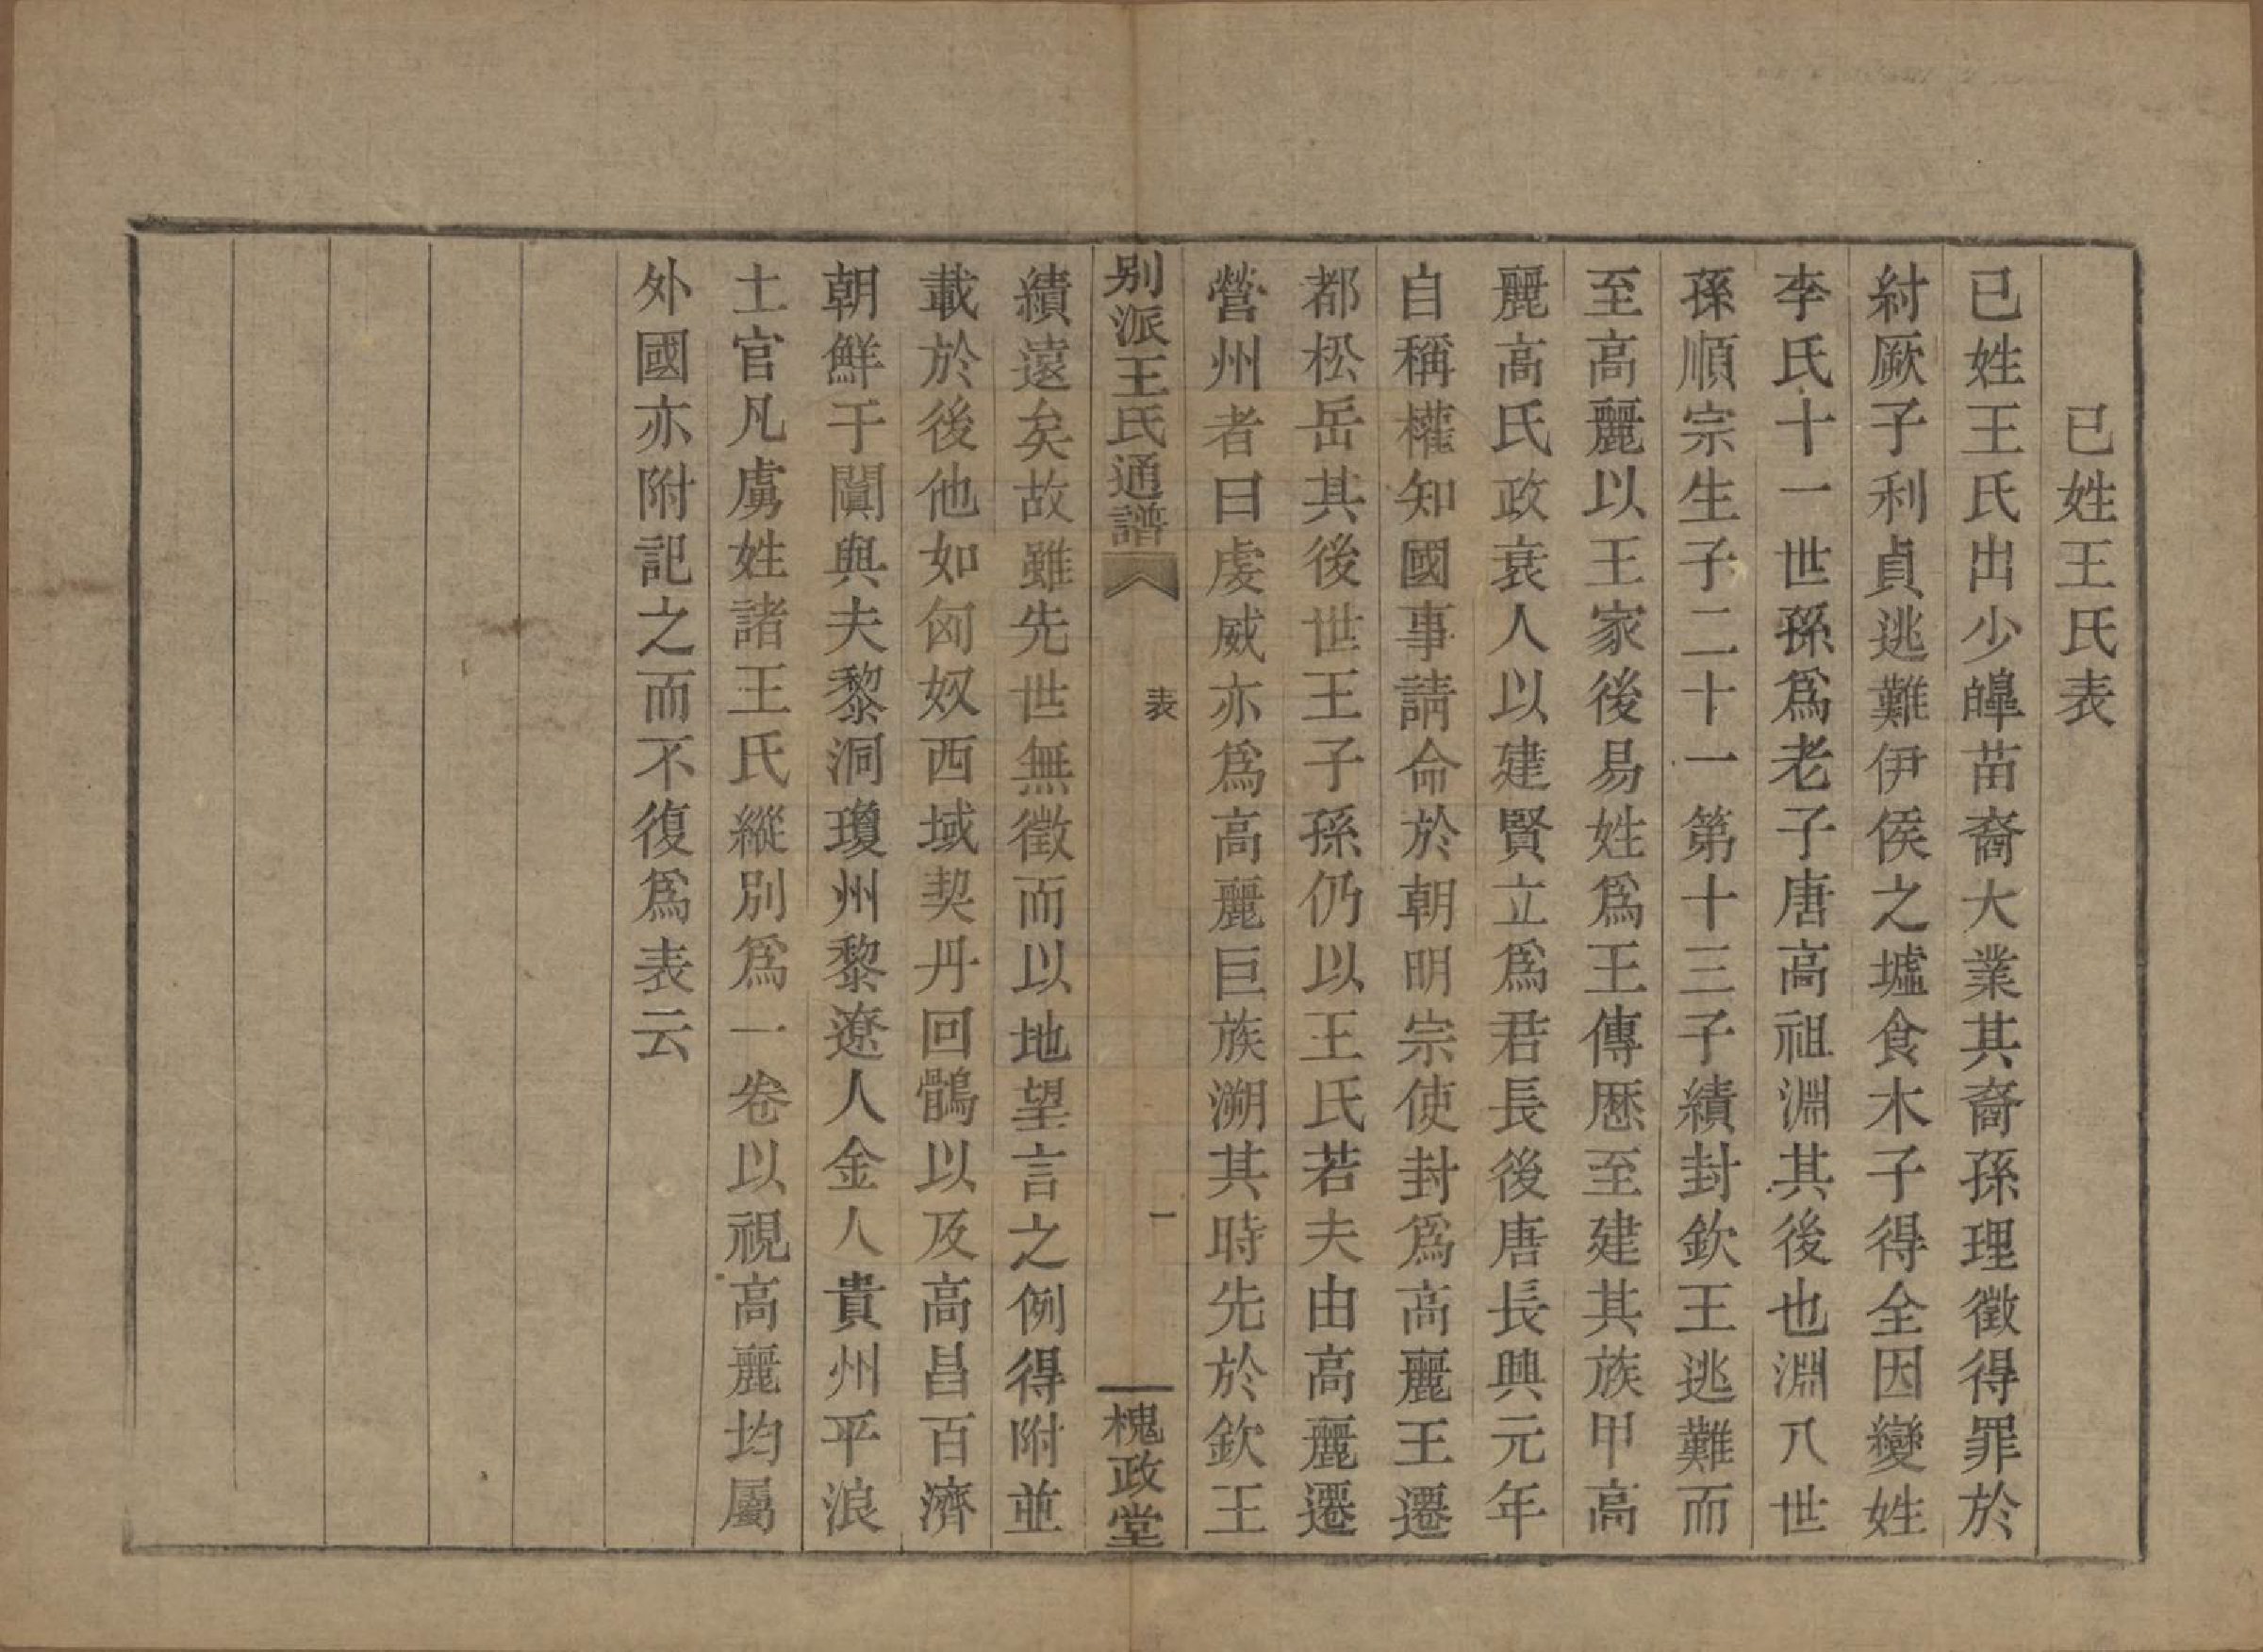 已姓王氏表
已姓王氏出少皥苗裔大業其裔孫理徵得罪於
紂厥子利貞逃難伊侯之墟食木子得全因變姓
李氏十一世孫爲老子唐高祖淵其後也淵八世
孫順宗生子二十一第十三子績封欽王逃難而
至高麗以王家後易姓爲王傳厯至建其族甲高
麗高氏政衰人以建賢立爲君長後唐長興元年
自稱權知國事請命於朝明宗使封爲高麗王遷
都松岳其後世王子孫仍以王氏若夫由高麗遷
營州者曰虔威亦爲高麗巨族溯其時先於欽王
别派王氏通譜
表
一
槐政堂
績遠矣故雖先世無徵而以地望言之例得附並
載於後他如匈奴西域契丹回鶻以及高昌百濟
朝鮮于闐與夫黎洞瓊州黎遼人金人貴州平浪
土官凡虜姓諸王氏縱別爲一卷以視高麗均屬
外國亦附記之而不復爲表云